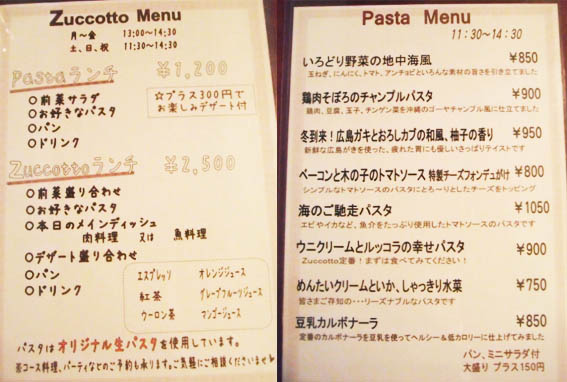 Zuccotto Menu
月～金 13:00～14:30
土、日、祝 11:30～14:30
Pastaランチ ¥1,200
○前菜サラダ
○お好きなパスタ
○パン
○ドリンク
☆プラス300円で
お楽しみデザート付
Zuccottoランチ ¥2,500
○前菜盛り合わせ
○お好きなパスタ
○本日のメインディッシュ
肉料理 又は 魚料理
○デザート盛り合わせ
○パン
○ドリンク
エスプレッソ オレンジジュース
紅茶 グレープフルーツジュース
ウーロン茶 マンゴージュース
パスタはオリジナル生パスタを使用しています。
※コース料理、パーティなどのご予約も承ります。ご気軽にご相談くださいませ
Pasta Menu
11:30～14:30
いろどり野菜の地中海風 ¥850
玉ねぎ、にんにく、トマト、アンチョビといろんな素材の旨さを引き立てました
鶏肉そぼろのチャンプルパスタ ¥900
鶏肉、豆腐、玉子、チンゲン菜を沖縄のゴーヤチャンプル風に仕立てました
冬到来!広島ガキとおろしカブの和風、柚子の香り ¥950
新鮮な広島がきを使った、疲れた胃にも優しいさっぱりテイストです
ベーコンと木の子のトマトソース 特製チーズフォンデュがけ ¥800
シンプルなトマトソースのパスタにとろ～りとしたチーズをトッピング
海のご馳走パスタ ¥1050
エビやイカなど、魚介をたっぷり使用したトマトソースのパスタです
ウニクリームとルッコラの幸せパスタ ¥900
Zuccotto定番!まずは食べてみてください!
めんたいクリームといか、しゃっきり水菜 ¥750
皆さまご存知の・・・リーズナブルなパスタです
豆乳カルボナーラ ¥850
定番のカルボナーラを豆乳を使ってヘルシー&低カロリーに仕上げてみました
パン、ミニサラダ付
大盛り プラス150円